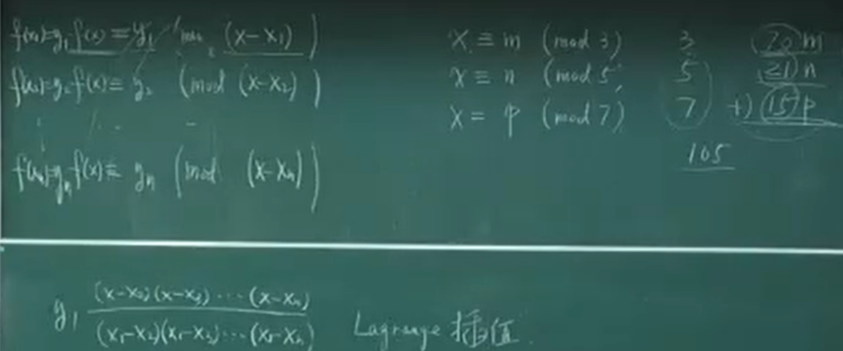 f(x₁)=y₁ f(x)≡y₁ (mod (x-x₁))
f(x₂)=y₂ f(x)≡y₂ (mod (x-x₂))
f(xₙ)=yₙ f(x)≡yₙ (mod (x-xₙ))
x≡m (mod 3) 3 70m
x≡n (mod 5) 5 21n
x=p (mod 7) 7 +) 15p
105
y₁ (x-x₂)(x-x₃)⋯(x-xₙ)
(x₁-x₂)(x₁-x₃)⋯(x₁-xₙ) Lagrange 插值